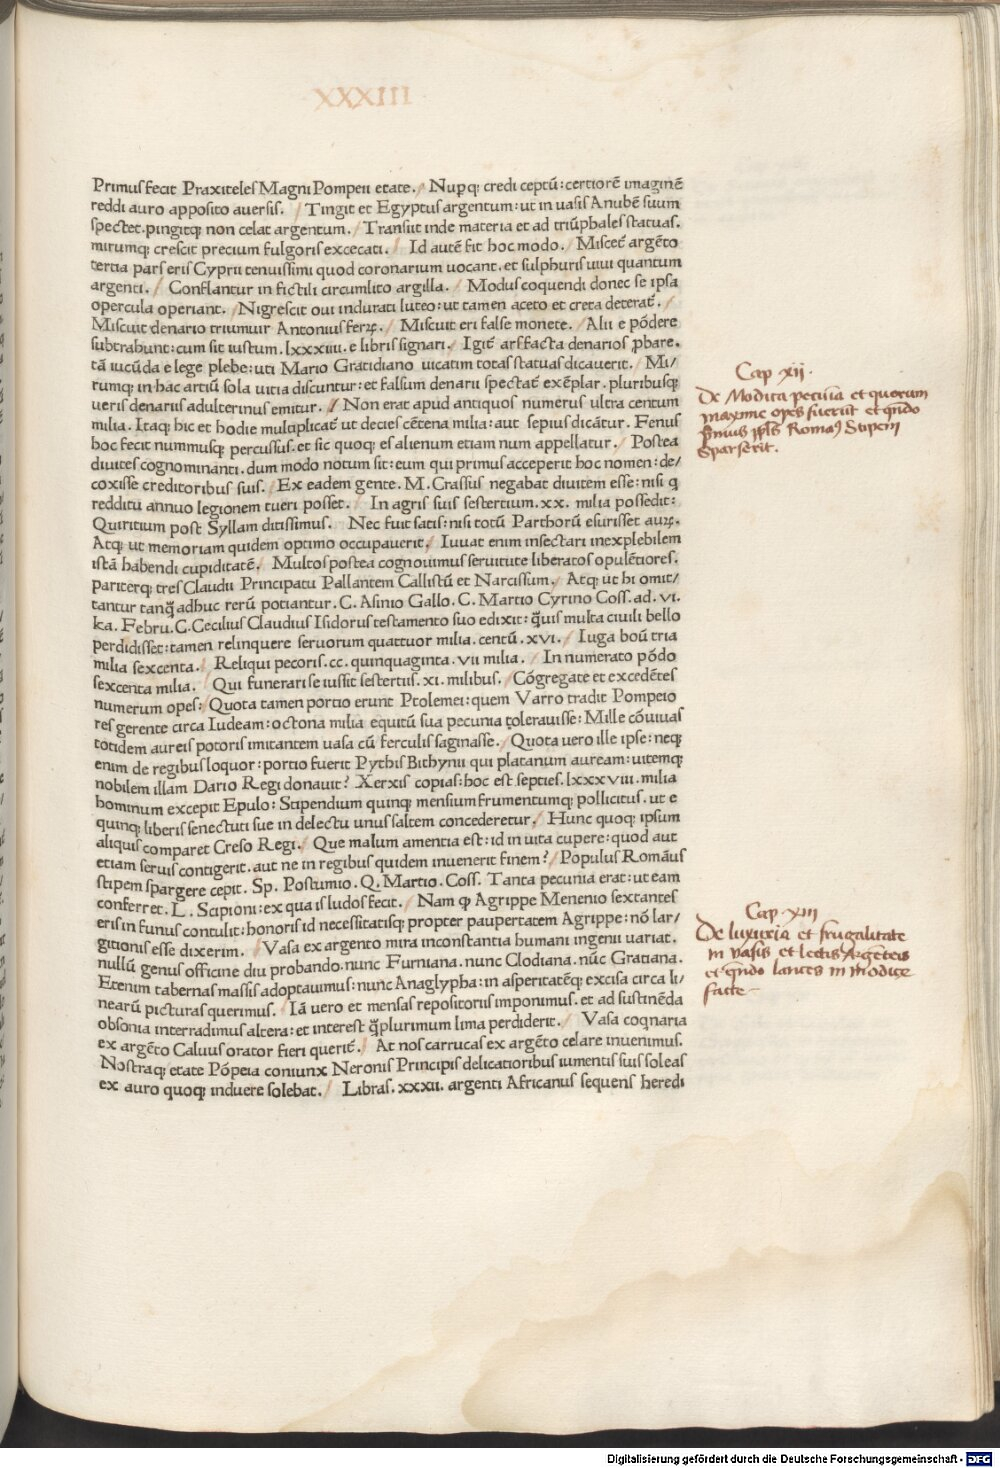 XXXIII
Primus fecit Praxiteles Magni Pompeii etate. Nupq; credi ceptū: certiorē imaginē
reddi auro apposito auersis. Tingit et Egyptus argentum: ut in uasis Anubē suum
spectet. pingitq; non celat argentum. Transiit inde materia et ad triūphales statuas.
mirumq; crescit precium fulgoris excecati. Id autē fit hoc modo. Miscet᷑ argēto
tertia pars eris Cyprii tenuissimi quod coronarium uocant. et sulphuris uiui quantum
argenti. Conflantur in fictili circumlito argilla. Modus coquendi donec se ipsa
opercula operiant. Nigrescit oui indurati luteo: ut tamen aceto et creta deterat᷑.
Miscuit denario triumuir Antonius ferꝝ. Miscuit eri false monete. Alii e pōdere
subtrahunt: cum sit iustum. lxxxiiii. e libris signari. Igit᷑ ars facta denarios ꝓbare.
tā iucūda e lege plebe: uti Mario Gratidiano uicatim totas statuas dicauerit. Mi/
rumq; in hac artiū sola uitia discuntur: et falsum denarii spectat᷑ exēplar. pluribusq;
ueris denariis adulterinus emitur. Non erat apud antiquos numerus ultra centum
milia. Itaq; hic et hodie multiplicat᷑ ut decies cētena milia: aut sepius dicātur. Fenus
hoc fecit nummusq; percussus. et sic quoq; es alienum etiam num appellatur. Postea
diuites cognominanti. dum modo notum sit: eum qui primus acceperit hoc nomen: de/
coxisse creditoribus suis. Ex eadem gente. M. Crassus negabat diuitem esse: nisi q
redditu annuo legionem tueri posset. In agris suis sestertium. xx. milia possedit:
Quiritium post Syllam ditissimus. Nec fuit satis: nisi totū Parthorū esurisset auꝝ.
Atq; ut memoriam quidem optimo occupauerit. Iuuat enim insectari inexplebilem
istā habendi cupiditatē. Multos postea cognouimus seruitute liberatos opulētiores.
pariterq; tres Claudii Principatu Pallantem Callistū et Narcissum. Atq; ut hi omit/
tantur tanq̄ adhuc rerū potiantur. C. Asinio Gallo. C. Martio Cyrino Coss. ad. vi.
ka. Febru. C. Cecilius Claudius Isidorus testamento suo edixit: q̄uis multa ciuili bello
perdidisset: tamen relinquere seruorum quattuor milia. centū. xvi. Iuga boū tria
milia sexcenta. Reliqui pecoris. cc. quinquaginta. vii milia. In numerato pōdo
sexcenta milia. Qui funerari se iussit sestertiis. xi. milibus. Cōgregate et excedētes
numerum opes: Quota tamen portio erunt Ptolemei: quem Varro tradit Pompeio
res gerente circa Iudeam: octona milia equitū sua pecunia tolerauisse: Mille cōuiuas
totidem aureis potoris imitantem uasa cū ferculis saginasse. Quota uero ille ipse: neq;
enim de regibus loquor: portio fuerit Pythis Bithynii qui platanum auream: uitemq;
nobilem illam Dario Regi donauit? Xerxis copias: hoc est septies. lxxxviii. milia
hominum excepit Epulo: Stipendium quinq; mensium frumentumq; pollicitus. ut e
quinq; liberis senectuti sue in delectu unus saltem concederetur. Hunc quoq; ipsum
aliquis comparet Creso Regi. Que malum amentia est: id in uita cupere: quod aut
etiam seruis contigerit. aut ne in regibus quidem inuenerit finem? Populus Romāus
stipem spargere cepit. Sp. Postumio. Q. Martio. Coss. Tanta pecunia erat: ut eam
conferret. L. Scipioni: ex qua is ludos fecit. Nam ꝙ Agrippe Menenio sextantes
eris in funus contulit: honoris id necessitatisq; propter paupertatem Agrippe: nō lar/
gitionis esse dixerim. Vasa ex argento mira inconstantia humani ingenii uariat.
nullū genus officine diu probando. nunc Furniana. nunc Clodiana. nūc Gratiana.
Etenim tabernas massis adoptauimus: nunc Anaglypha: in asperitatēq; excisa circa li/
nearū picturas querimus. Iā uero et mensas repositoriis imponimus. et ad sustinēda
obsonia interradimus altera: et interest q̄plurimum lima perdiderit. Vasa coqnaria
ex argēto Caluus orator fieri querit᷑. At nos carrucas ex argēto celare inuenimus.
Nostraq; etate Pōpeia coniunx Neronis Principis delicatioribus iumentis suis soleas
ex auro quoq; induere solebat. Libras. xxxii. argenti Africanus sequens heredi
Cap xii.
De Modica pecuīa et quorum
maxime opes fuerūt et qn̄do
p̄mus pp̄ls Romaꝰ Stipem
Sparserit.
Cap. xiii
De luxuria et frugalitate
in vasis et lectis Argēteis
et qn̄do lances in modice
facte
Digitalisierung gefördert durch die Deutsche Forschungsgemeinschaft - DFG